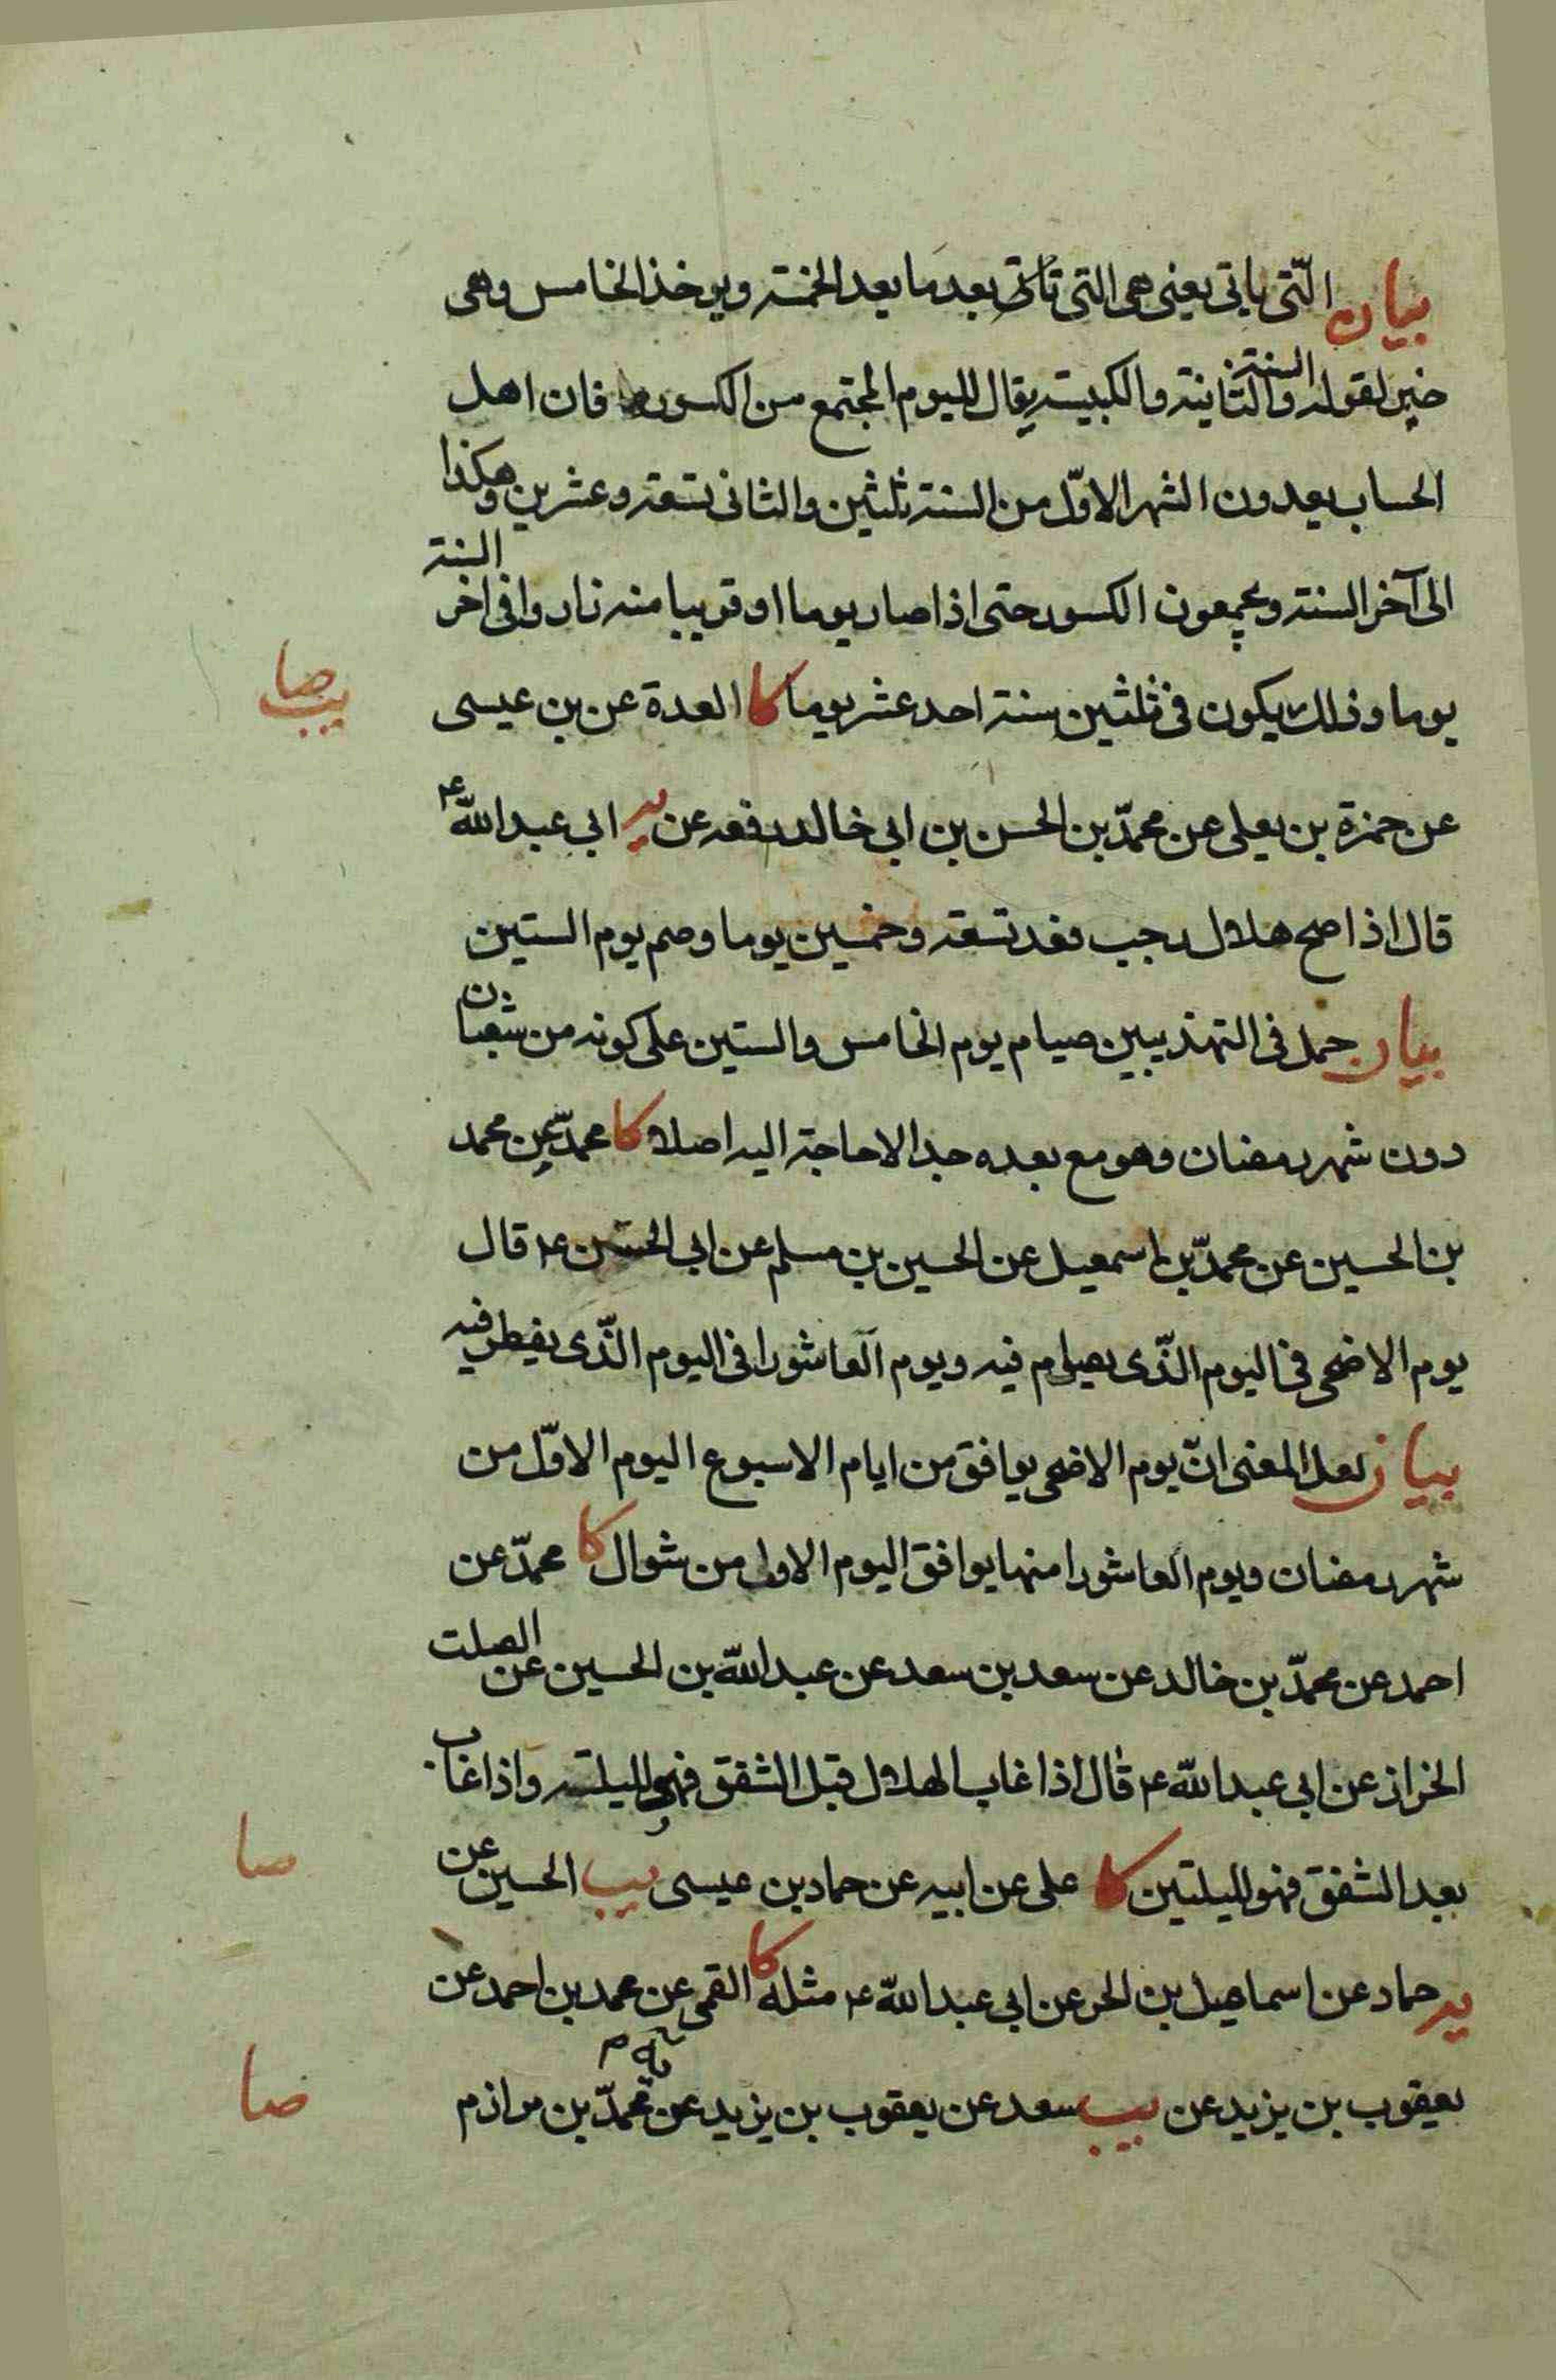 بيان التّى ياتى يعنى هى التى تاتى بعد ما يعد الخمسة ويوخذ الخامس وهى
خبر لقوله والسنة الثانية والكبيسة يقال لليوم المجتمع من الكسور فان اهل
الحساب يعدون الشهر الاوّل من السنة ثلثين والثانى تسعة وعشرين وهكذا
الى آخر السنة ويجمعون الكسور حتى اذا صار يوما او قريبا منه زادوا فى اخر السنة
يوما وذلك يكون فى ثلثين سنة احد عشر يوما كا العدة عن بن عيسى
يب صا
عن حمزة بن يعلى عن محمدّ بن الحسن بن ابى خالد رفعه عن يه ابي عبد اللّه ع
قال اذا صح هلال رجب فعد تسعة وخمسين يوما وصم يوم الستين
بيان حمل فى التهذيبين صيام يوم الخامس والستين على كونه من شعبان
دون شهر رمضان وهو مع بعده جدا لا حاجة اليه اصلا كا محمدّ عن محمد
بن الحسين عن محمدّ بن اسمعيل عن الحسين بن مسلم عن ابى الحسن ع قال
يوم الاضحى فى اليوم الذّى يصام فيه ويوم العاشورا فى اليوم الذّى يفطر فيه
بيان لعل المعنى انّ يوم الاضحى يوافق من ايام الاسبوع اليوم الاوّل من
شهر رمضان ويوم العاشورا منها يوافق اليوم الاول من شوال كا محمدّ عن
احمد عن محمدّ بن خالد عن سعد بن سعد عن عبد اللّه بن الحسين عن الصلت
الخزاز عن ابي عبد اللّه ع قال اذا غاب الهلال قبل الشفق فهو لليلة واذا غاب
بعد الشفق فهو لليلتين كا على عن ابيه عن حماد بن عيسى يب الحسين عن
صا
يه حماد عن اسماعيل بن الحر عن ابي عبد اللّه ع مثله كا القمى عن محمد بن احمد عن
يعقوب بن يزيد عن يب سعد عن يعقوب بن يزيد عن محمدّ بن مرازم
صا